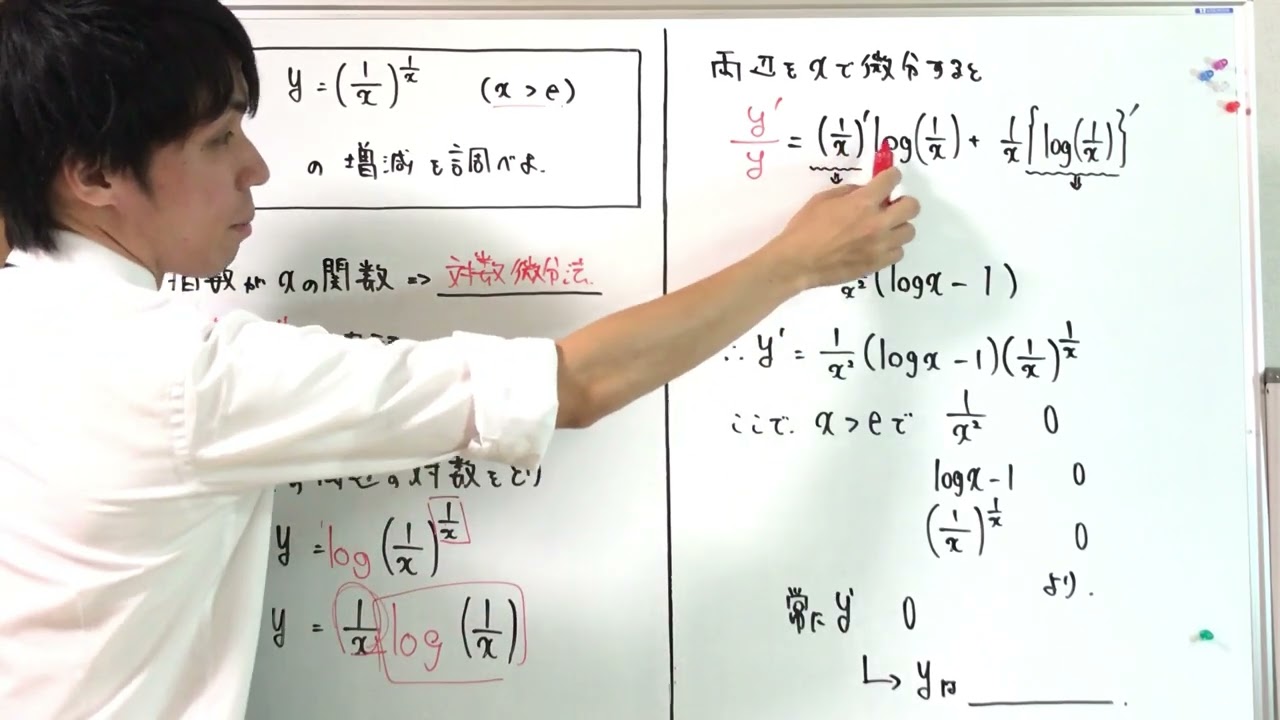 y = (1/x)^(1/x) (x > e)
の増減を調べよ.
指数がxの関数 ⇒ 対数微分法.
対数をとり
y = log(1/x)^(1/x)
y = 1/x log(1/x)
両辺をxで微分すると
y'/y = (1/x)' log(1/x) + 1/x {log(1/x)}'
⇓ ⇓
x²(logx - 1)
∴ y' = 1/x² (logx - 1)(1/x)^(1/x)
ここで. x > e で 1/x² 0
logx - 1 0
(1/x)^(1/x) 0
より.
常に y' 0
↳ yは